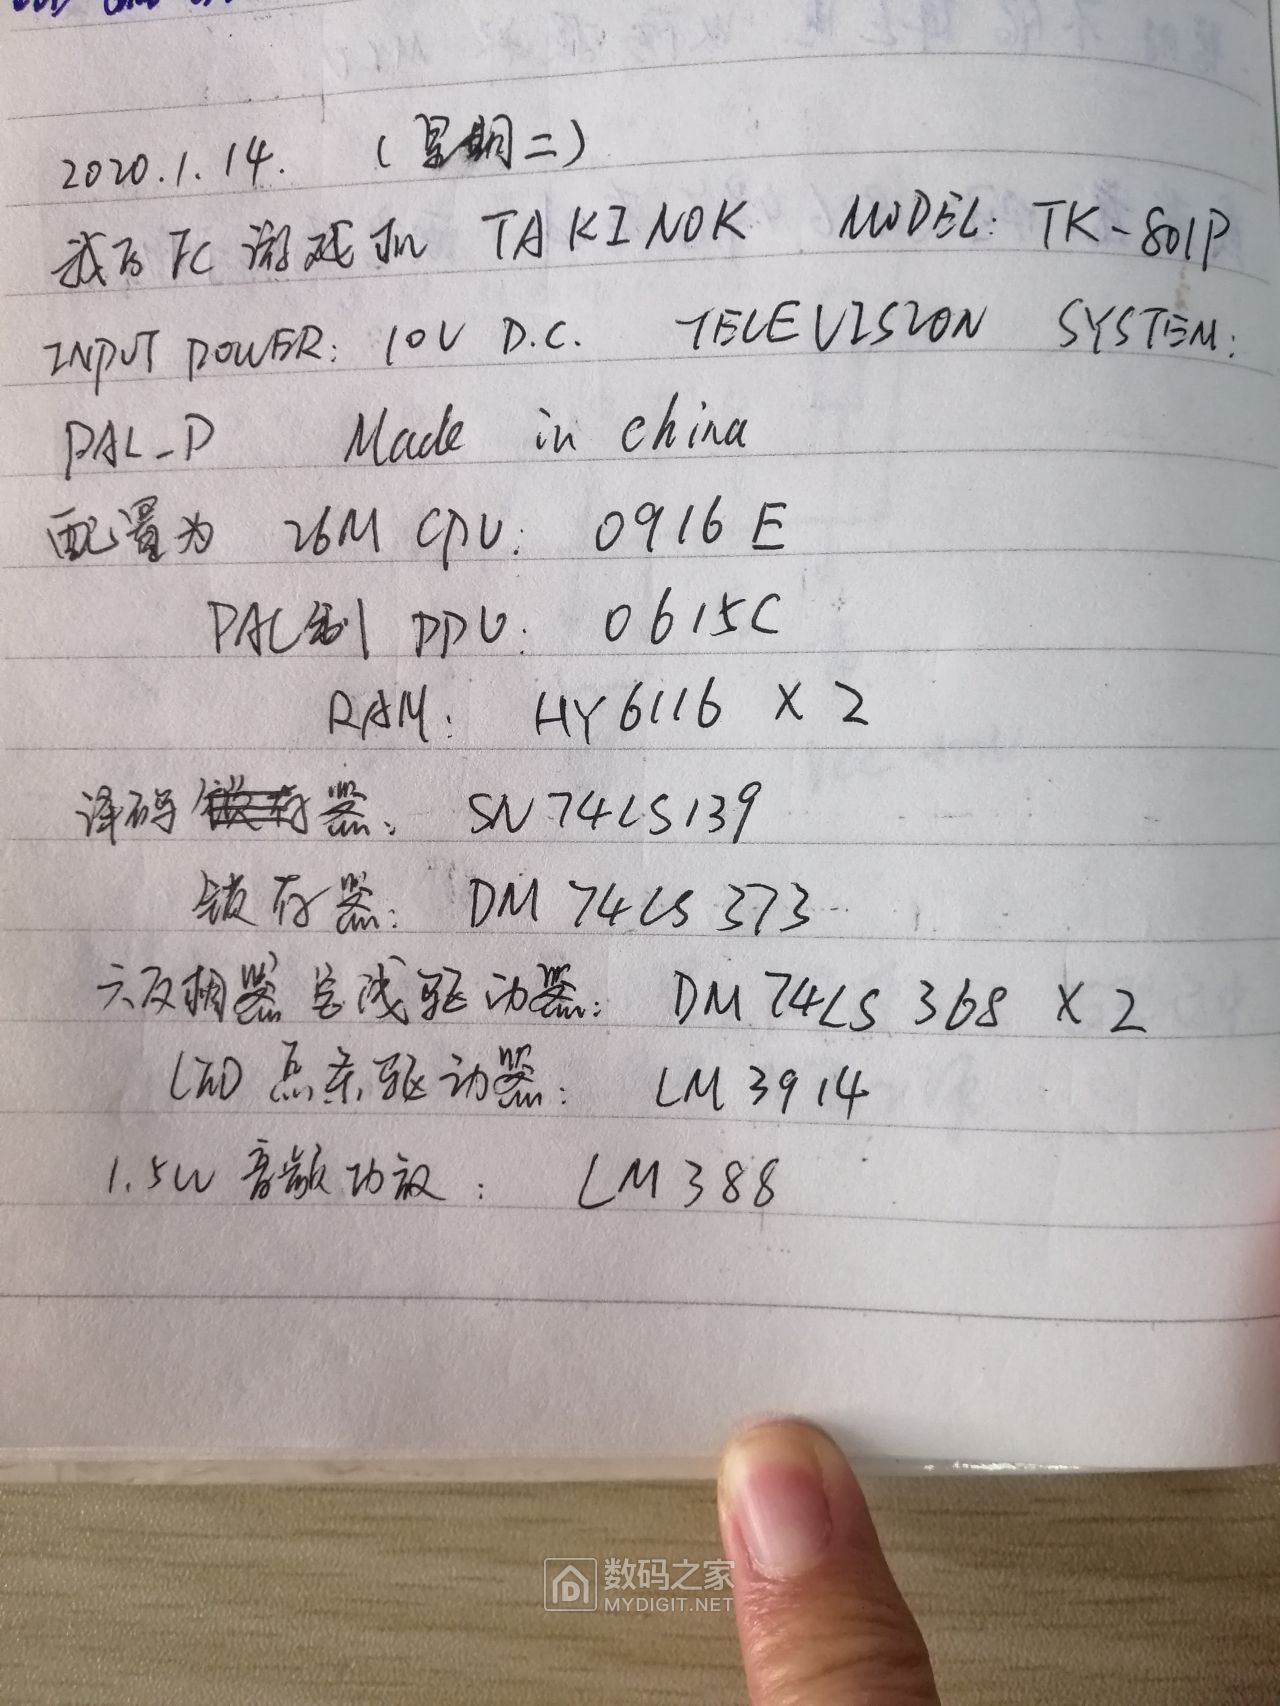 2020.1.14. (星期二)
我的FC游戏机 TAKINOK MODEL: TK-801P
INPUT POWER: 10V D.C. TELEVISION SYSTEM:
PAL-D Made in china
配置为 26M CPU: 0916E
PAL制 PPU: 0615C
RAM: HY6116 X 2
译码器: SN74LS139
锁存器: DM74LS373
六反相器总线驱动器: DM74LS368 X 2
LED点条驱动器: LM3914
1.5W音频功放: LM388
数码之家
MYDIGIT.NET